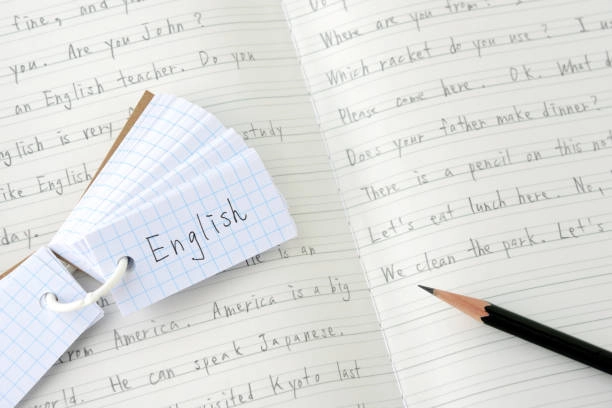 fine, and you?
you. Are you John?
an English teacher. Do you
English is very study
like English
day.
He is an
from America. America is a big
world. He can speak Japanese.
visited Kyoto last
English
Do yo
Where are you from? I
Which racket do you use? I u
Please come here. Ok. What d
Does your father make dinner?
There is a pencil on this no
Let's eat lunch here. No,
We clean the park. Let's